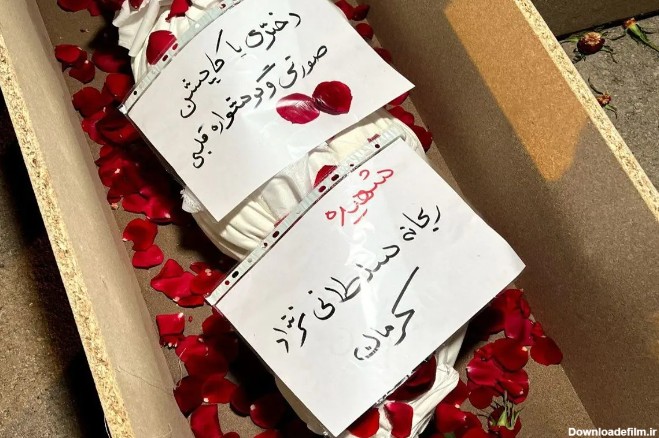 دختری با کاپشن
صورتی و گوشواره قلبی
شهیده
ریحانه سلطانی نژاد
کرمان
Downloadefilm.ir